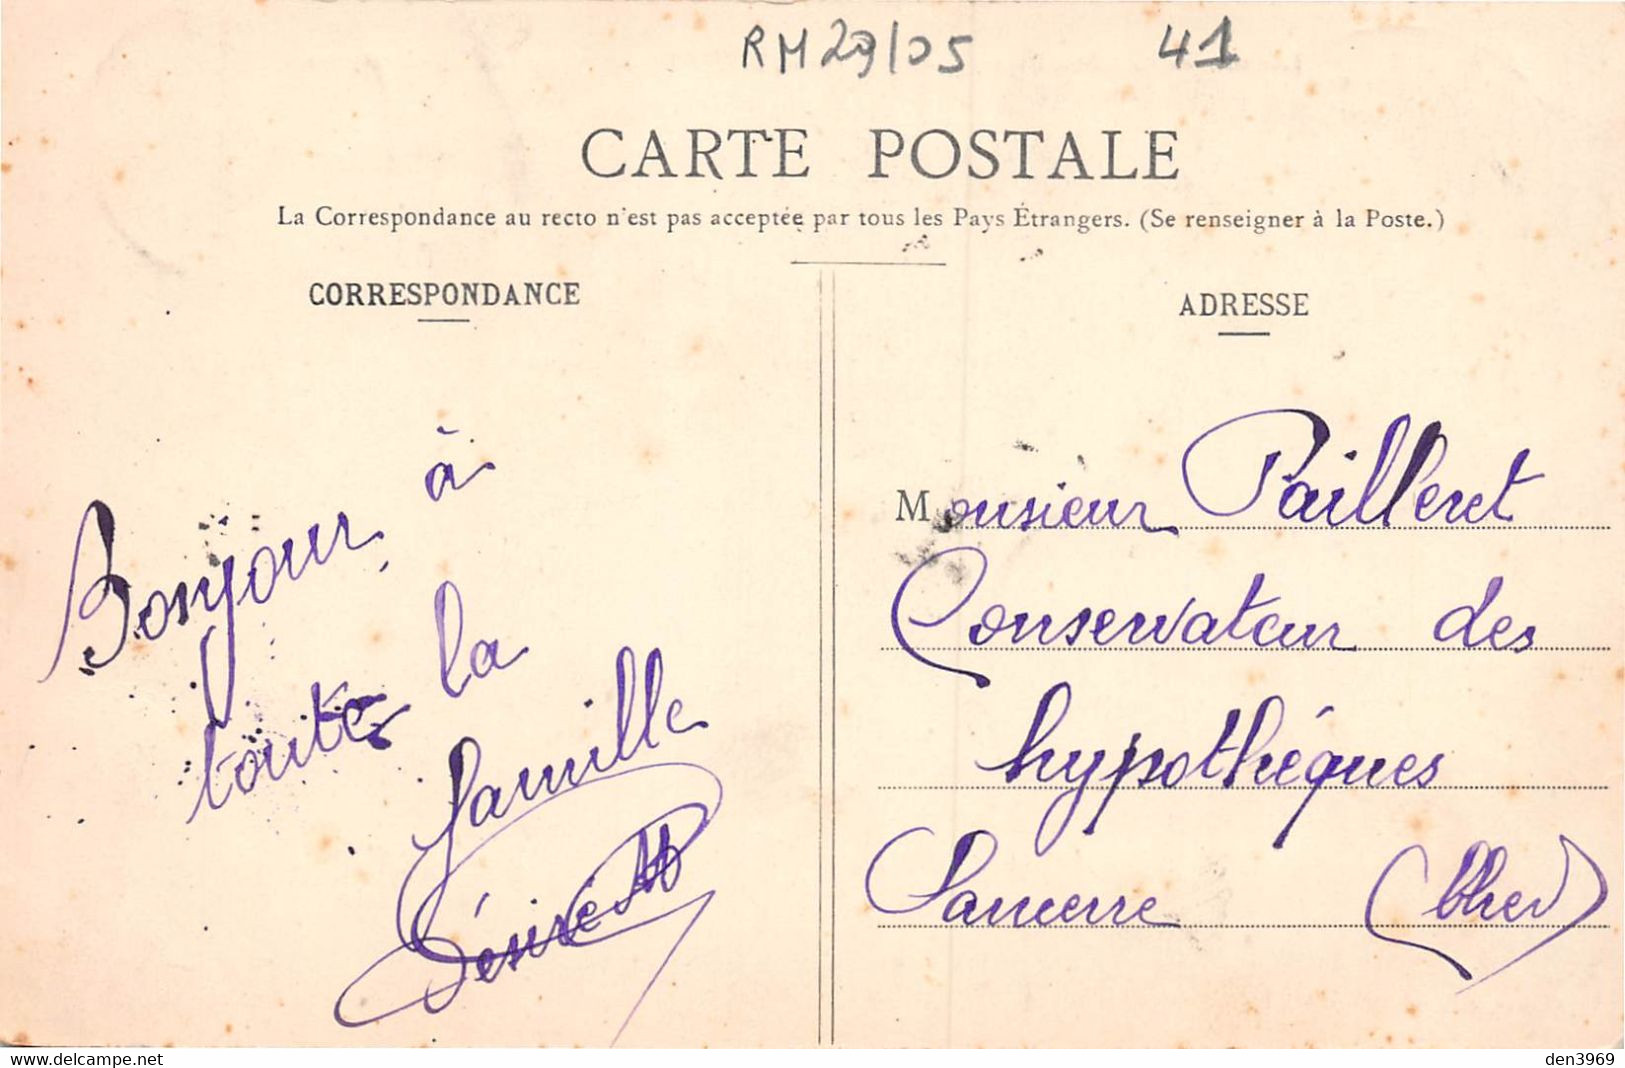 RM29/05 41
CARTE POSTALE
La Correspondance au recto n'est pas acceptée par tous les Pays Étrangers. (Se renseigner à la Poste.)
CORRESPONDANCE
Bonjour à
toute la
famille
Désiré
ADRESSE
Monsieur Pailleret
Conservateur des
hypothéques
Sancerre (Cher)
www.delcampe.net
den3969